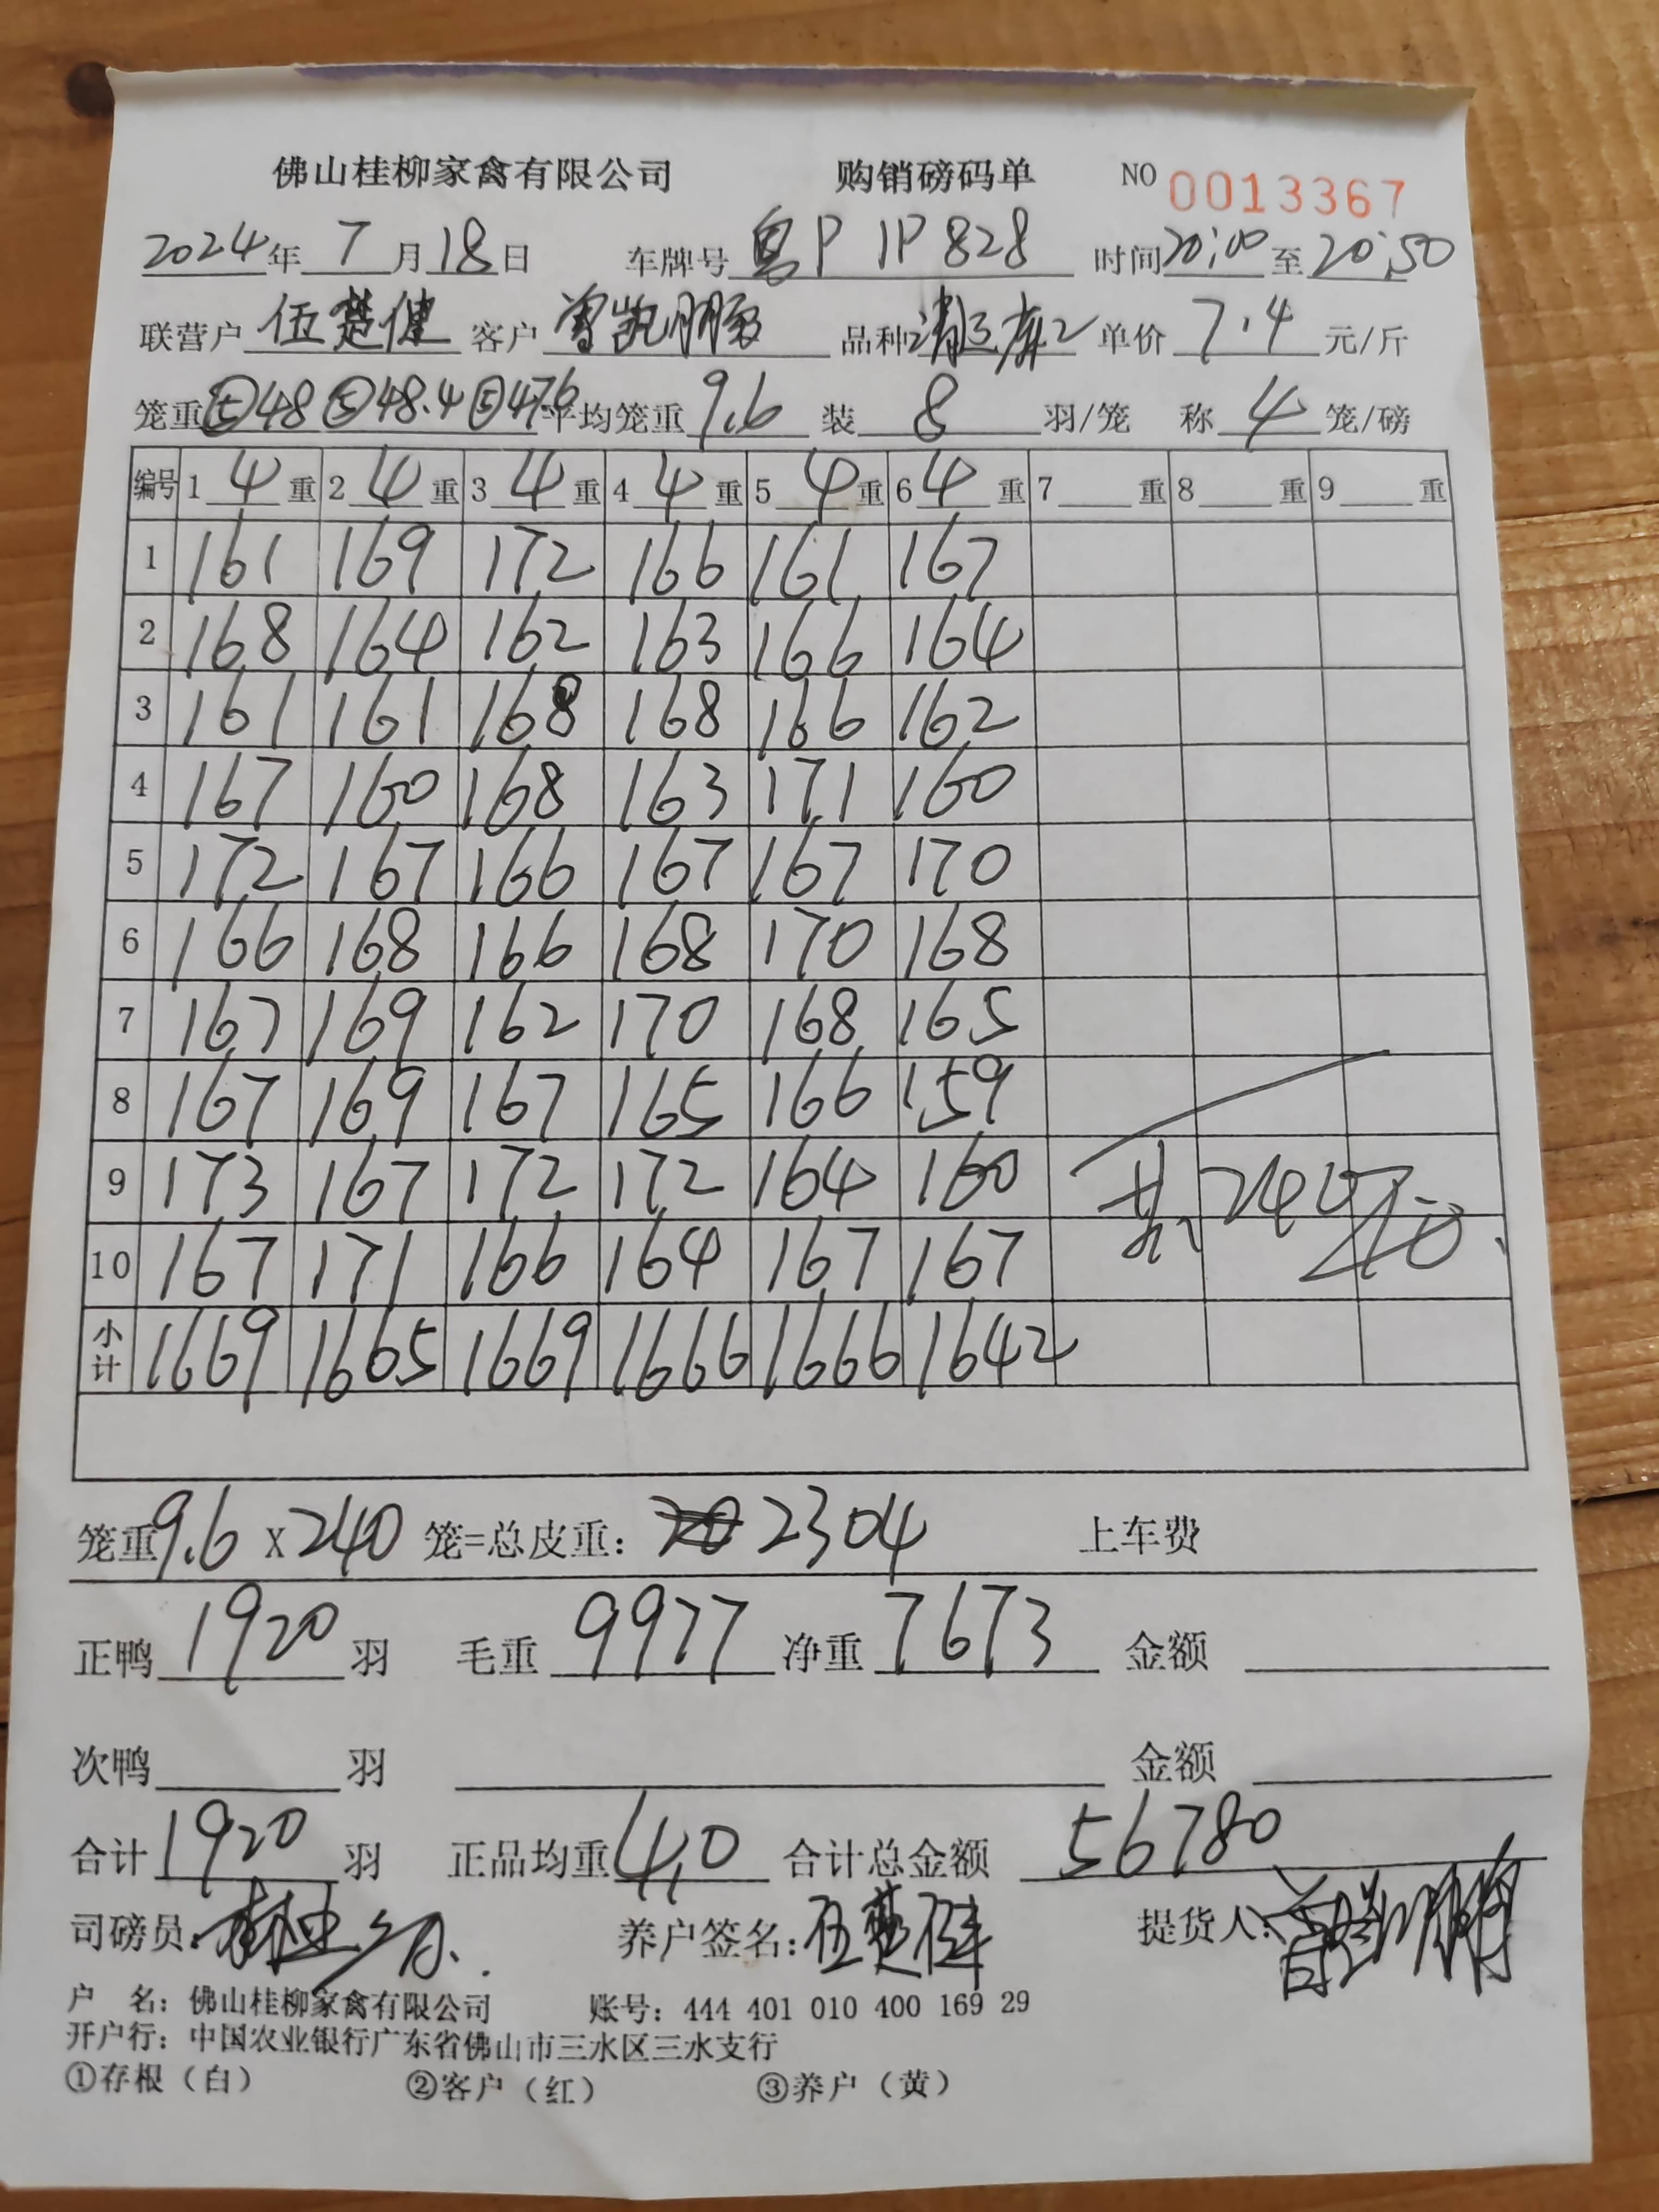 佛山桂柳家禽有限公司 购销磅码单 NO 0013367
2024年 7 月 18 日 车牌号 粤P 1P828 时间 20:00 至 20:50
联营户 伍楚健 客户 曾凯鹏 品种 单价 7.4 元/斤
笼重 ⑤48 ⑤48.4 ⑤47.6 平均笼重 9.6 装 8 羽/笼 称 4 笼/磅
编号 1 4 重 2 4 重 3 4 重 4 4 重 5 4 重 6 4 重 7 重 8 重 9 重
1 161 169 172 166 161 167
2 168 164 162 163 166 164
3 161 161 168 168 166 162
4 167 160 168 163 171 160
5 172 167 166 167 167 170
6 166 168 166 168 170 168
7 167 169 162 170 168 165
8 167 169 167 165 166 159
9 173 167 172 172 164 160
10 167 171 166 164 167 167
小计 1669 1665 1669 1666 1666 1642
笼重 9.6 X 240 笼=总皮重: 2304 上车费
正鸭 1920 羽 毛重 9977 净重 7673 金额
次鸭 羽 金额
合计 1920 羽 正品均重 4.0 合计总金额 56780
司磅员: 养户签名: 伍楚健 提货人: 曾凯鹏
户 名: 佛山桂柳家禽有限公司 账号: 444 401 010 400 169 29
开户行: 中国农业银行广东省佛山市三水区三水支行
①存根(白) ②客户(红) ③养户(黄)